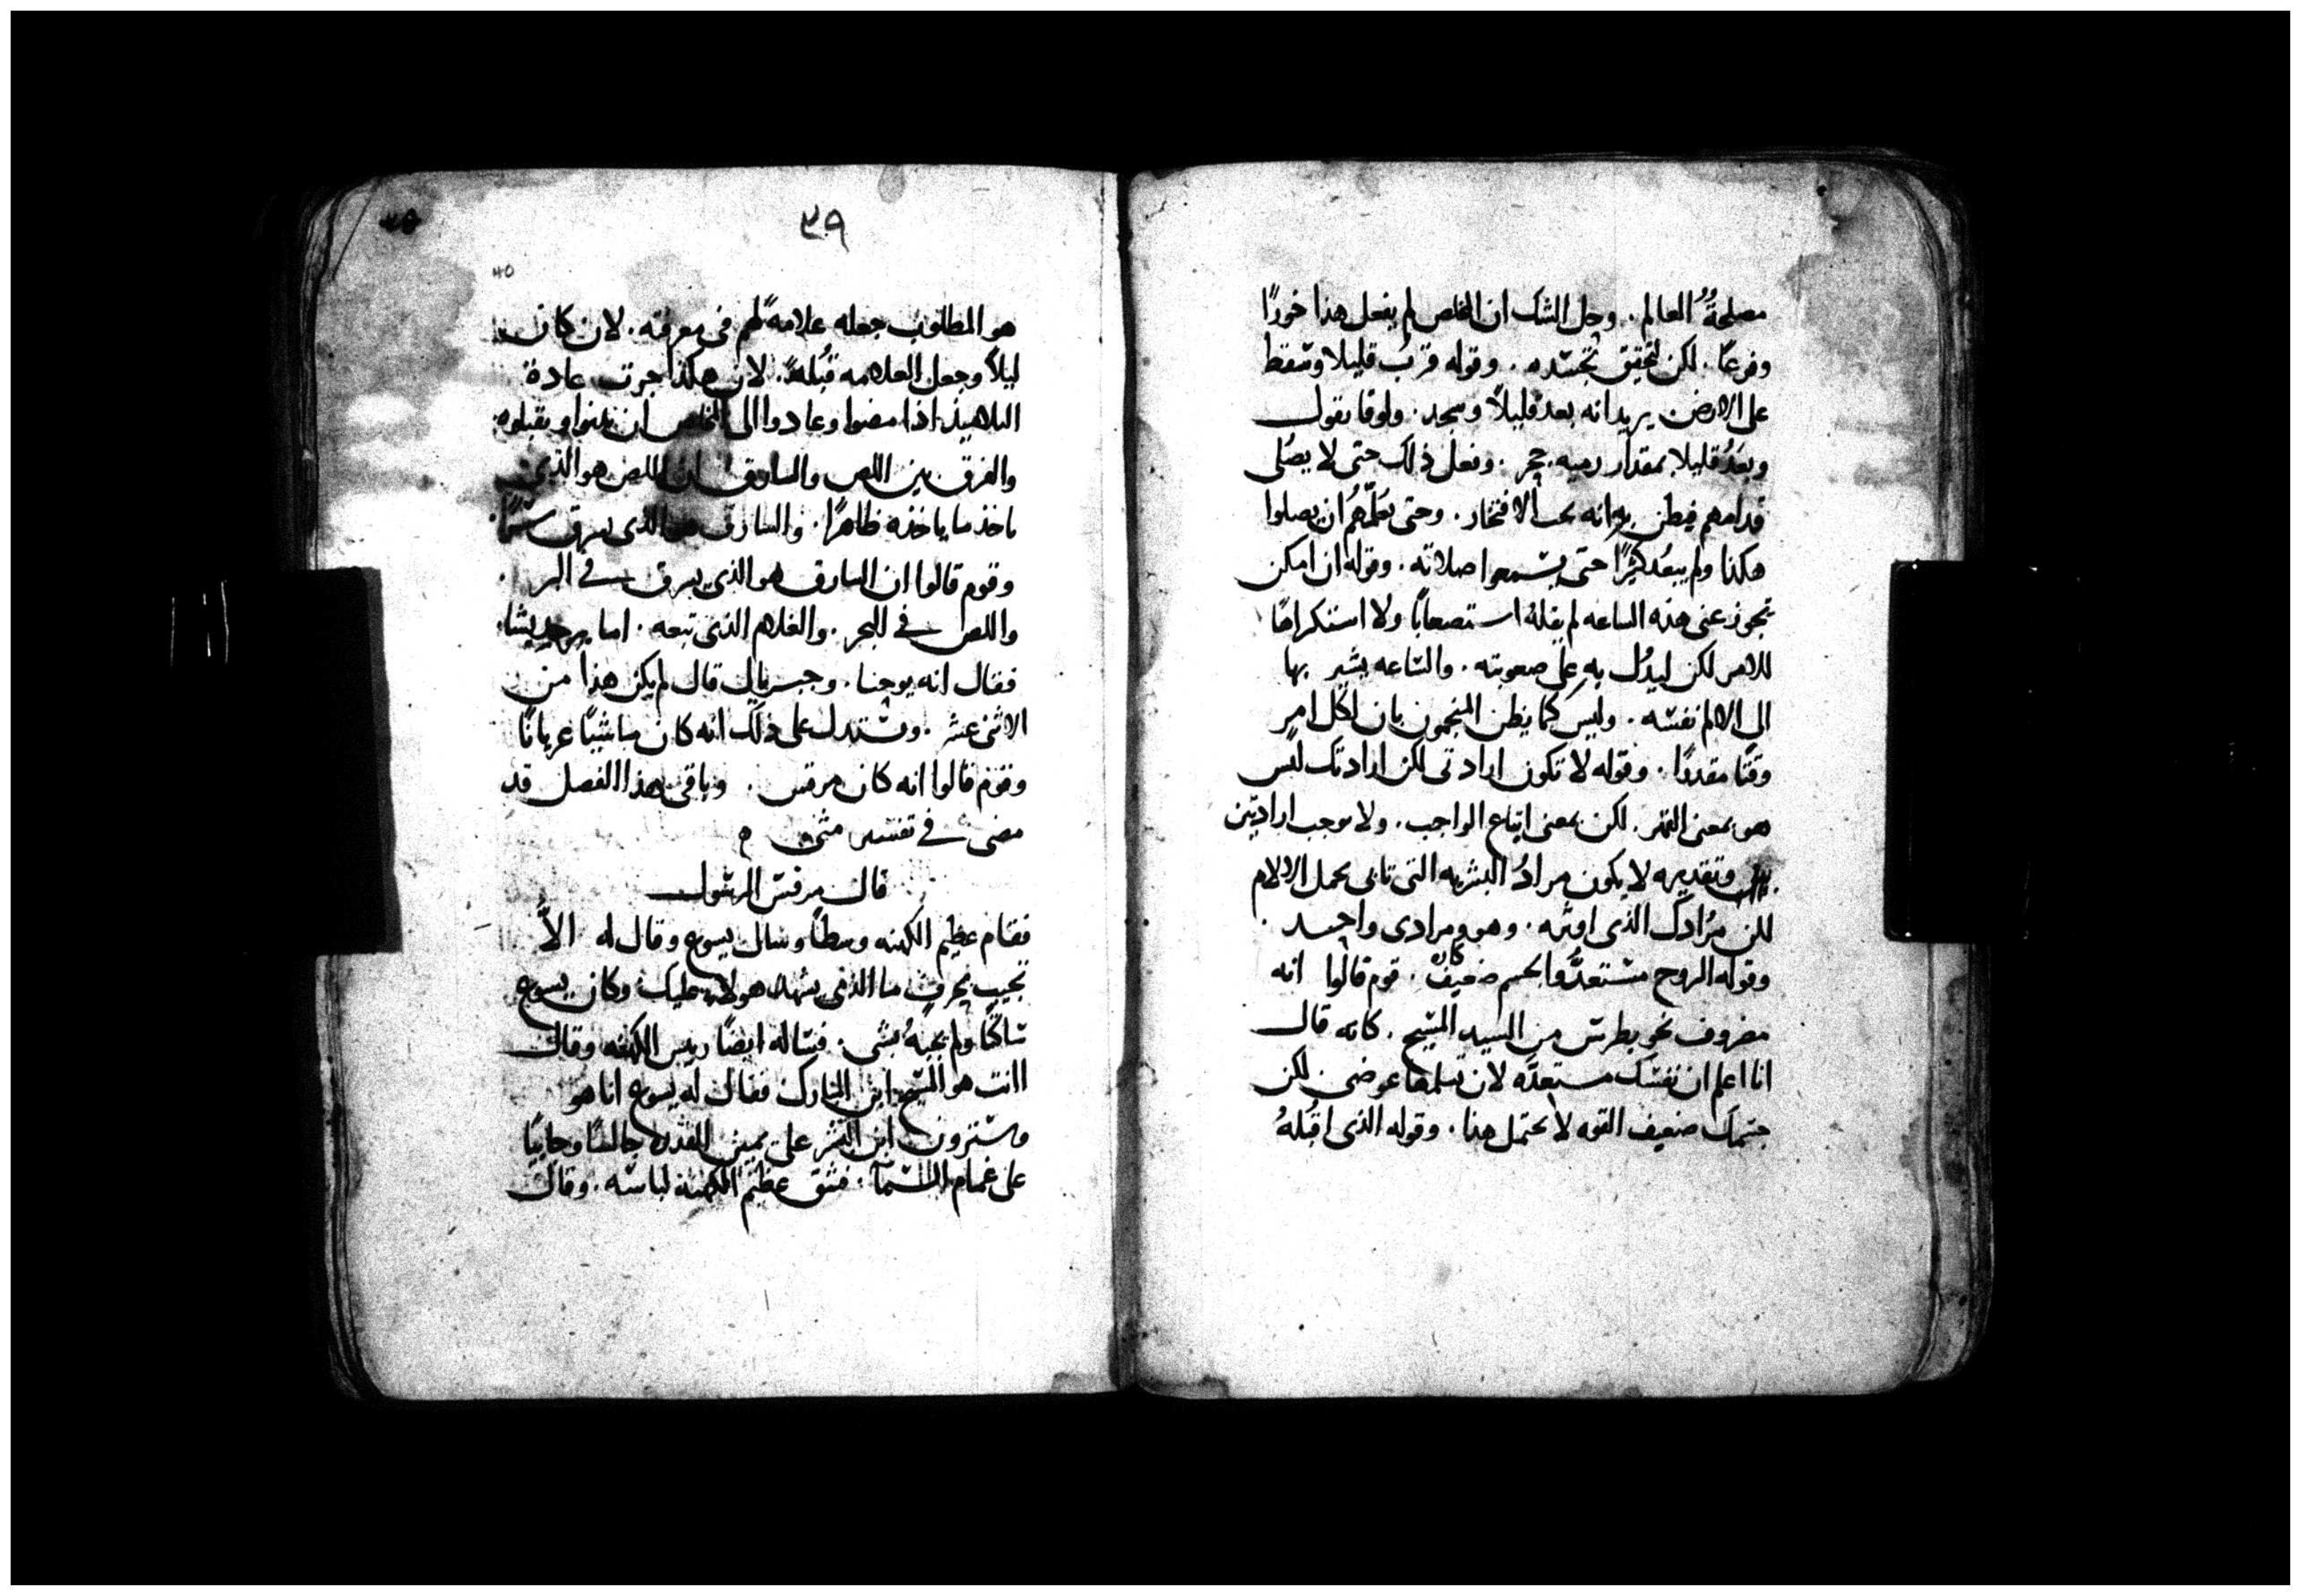 مصلحةُ العالم. وحل الشك ان المخلص لم يفعل هذا خورًا
وفزعًا. لكن لتحقيق تجسّده. وقوله قرب قليلا وسقط
على الارض يريد انه بعد قليلاً وسجد. ولوقا يقول
وبَعُد قليلا بمقدار رميه حجر. وفعل ذلك حتى لا يصلى
قدامهم فيظن به انه يحب الافتخار. وحتى يعلّمهم ان يصلوا
هكذا ولم يبعُد كثيرًا حتى يسمعوا صلاته. وقوله ان امكن
تجوز عنى هذه الساعه لم يقلهُ استصعابًا ولا استكراهًا
للامر لكن ليدُل به على صعوبته. والساعه يشير بها
الى الالم نفسه. وليس كما يظن المنجمون بان لكل امرٍ
وقتًا مقدرًا. وقوله لا تكون ارادتى لكن ارادتك ليس
هو بمعنى القهر. لكن بمعنى اتباع الواجب. ولا يوجب ارادتين
وتقديره لا يكون مرادُ البشريه التى تابى تحمل الالام
لكن مُرادك الذى اوثره. وهو ومرادى واحد.
وقوله الروح مستعدُّ والجسم ضعيف كان. قوم قالوا انه
مصروف نحو بطرس من السيد المسيح. كانه قال
انا اعلم ان نفسك مستعدَّه لان تسلمها عوضى لكن
جسمك ضعيف القوه لا يحتمل هذا. وقوله الذى اقبّلهُ
٣٩
هو المطلوب جعله علامةً لهم فى معرفته. لان كان
ليلاً وجعل العلامه قُبلةً. لان هكذا جرت عادة
التلاميذ اذا مضوا وعادوا الى المخلص ان يدنوا ويقبلوه
والفرق بين اللص والسارق ان اللص هو الذى
ياخذ ما ياخذه ظاهرًا. والسارق هو الذى يسرق سرًّا.
وقوم قالوا ان السارق هو الذى يسرق فى البر.
واللص فى البحر. والغلام الذى تبعه. اما
فقال انه يوحنا. وجبريال قال لم يكن هذا من
الاثنى عشر. وتستدل على ذلك انه كان ماشيًا عريانًا
وقوم قالوا انه كان مرقس. وباقى هذا الفصل قد
مضى فى تفسير متى ه
قال مرقس الرسول
فقام عظيم الكهنه وسطًا وسال يسوع وقال له الاَّ
تجيب بحرفٍ ما الذى يشهد هولاء عليك وكان يسوع
ساكتًا ولم يجبهُ بشى. فساله ايضًا ريس الكهنه وقال
اانت هو المسيح ابن المبارك فقال له يسوع انا هو
وسترون ابن البشر على يمين القدره جالسًا وجاييًا
على غمام السمآ. فشق عظيم الكهنة لباسه. وقال